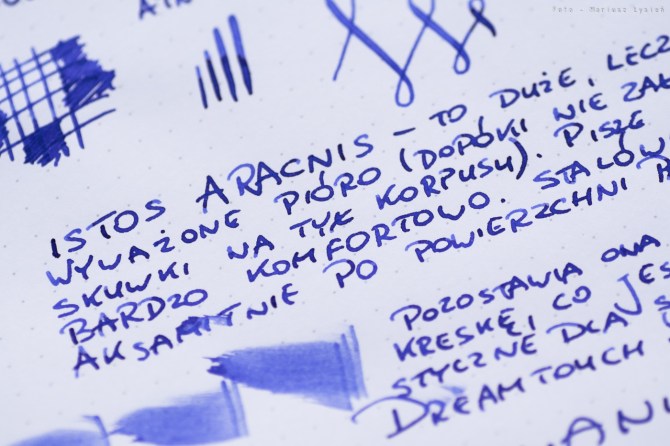 Foto - Mariusz Łysień
ISTOS ARACNIS – TO DUŻE, LECZ
WYWAŻONE PIÓRO (DOPÓKI NIE ZAK
SKUWKI NA TYŁ KORPUSU). PISZE
BARDZO KOMFORTOWO. STALÓW
AKSAMITNIE PO POWIERZCHNI
POZOSTAWIA ONA
KRESKĘ I CO JES
STYCZNE DLA
DREAMTOUCH